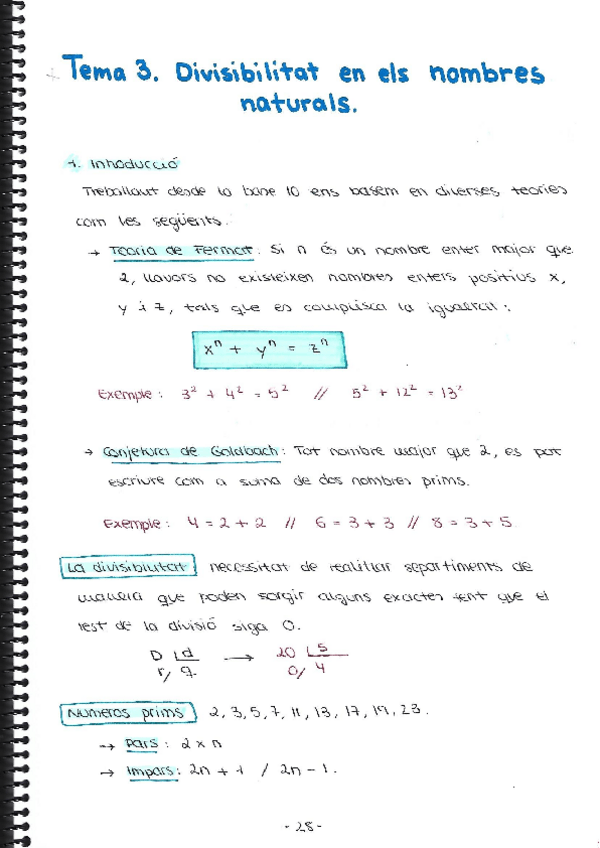 Tema 3. Divisibilitat en els nombres
naturals.
1. Introducció
Treballant desde la base 10 ens basem en diverses teories
com les següents.
→ Teoria de Fermat: Si n és un nombre enter major que
2, llavors no existeixen nombres enters positius x,
y i z, tals que es complisca la igualtat:
xⁿ + yⁿ = zⁿ
Exemple: 3² + 4² = 5² // 5² + 12² = 13²
→ Conjetura de Goldbach: Tot nombre major que 2, es pot
escriure com a suma de dos nombres prims.
Exemple: 4 = 2 + 2 // 6 = 3 + 3 // 8 = 3 + 5
La divisibilitat necessitat de realitzar repartiments de
manera que poden sorgir alguns exactes fent que el
rest de la divisió siga 0.
D d → 20 5
r/ q 0/ 4
Numeros prims 2, 3, 5, 7, 11, 13, 17, 19, 23.
→ Pars: 2 x n
→ Impars: 2n + 1 / 2n - 1.
- 28 -